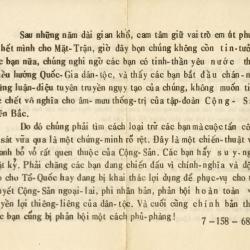 Sau những năm dài gian khổ, cam tâm giữ vai trò em út phụ
hết mình cho Mặt-Trận, giờ đây bạn chúng không còn tin-tưởng
ác bạn nữa, chúng nghi ngờ các bạn có tinh-thần yêu nước th
iều hướng Quốc-Gia dân-tộc, và thấy các bạn bắt đầu chán-n
ững luận-điệu tuyên truyền ngụy tạo của chúng, không muốn ti
c chết vô nghĩa cho âm-mưu thống-trị của tập-đoàn Cộng - S
iền Bắc.
Do đó chúng phải tìm cách loại trừ các bạn mà cuộc tấn cô
sát vừa qua là một chứng-minh rõ rệt. Đây là một chiến-thuật
anh bỏ vỏ rất quen thuộc của Cộng-Sản. Các bạn hãy suy-ng
ật kỹ. Phải chăng các bạn đang chiến đấu vì chính-nghĩa và độ
o cho Tổ-Quốc hay đang bị khai thác lợi-dụng để phục-vụ cho
uyết Cộng-Sản ngoại-lai, phi nhân bản, phản bội hoàn toàn
yền lợi thiêng-liêng của dân-tộc. Và cuối cùng chính bản th
ác bạn cũng bị phản bội một cách phũ-phàng!
7-158-68